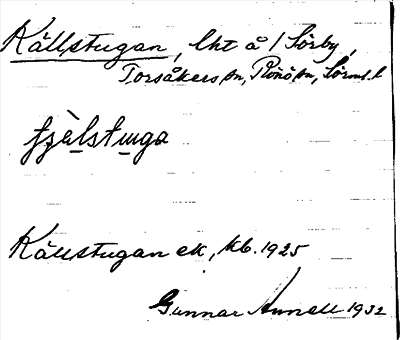 Källstugan, lht å / Sörby,
Torsåkers sn, Rönö hd, Sörml. l
Källstugan ek, kb. 1925
Gunnar Annell 1932